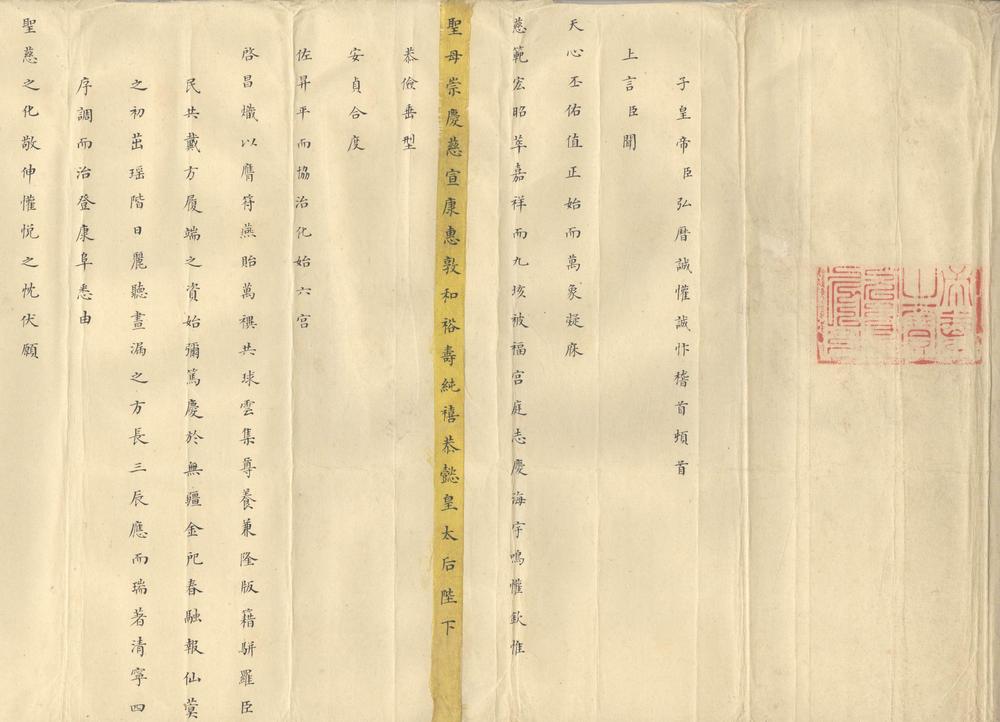 子皇帝臣弘曆誠懽誠忭稽首頓首
上言臣聞
天心丕佑值正始而萬象凝庥
慈範宏昭萃嘉祥而九垓被福宮庭志慶海宇鳴懽欽惟
聖母崇慶慈宣康惠敦和裕壽純禧恭懿皇太后陛下
恭儉垂型
安貞合度
佐昇平而協治化始六宮
啓昌熾以膺符燕貽萬禩共球雲集尊養兼隆版籍駢羅臣
民共戴方履端之資始彌篤慶於無疆金戺春融報仙蓂
之初茁瑶階日麗聽晝漏之方長三辰應而瑞著清寧四
序調而治登康阜悉由
聖慈之化敬伸懽悅之忱伏願